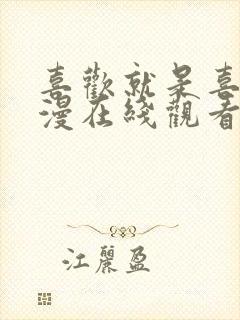 喜歡就是喜
漫在綫觀看
江麗盈